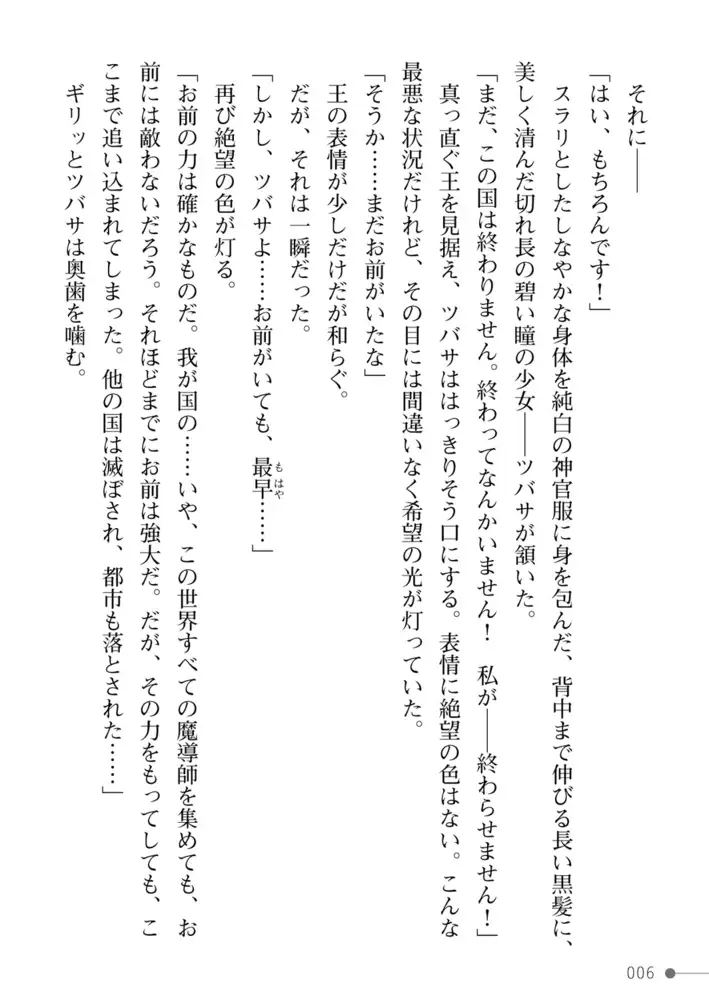 それに――
「はい、もちろんです！」
スラリとしたしなやかな身体を純白の神官服に身を包んだ、背中まで伸びる長い黒髪に、
美しく清んだ切れ長の碧い瞳の少女――ツバサが頷いた。
「まだ、この国は終わりません。終わってなんかいません！　私が――終わらせません！」
真っ直ぐ王を見据え、ツバサははっきりそう口にする。表情に絶望の色はない。こんな
最悪な状況だけれど、その目には間違いなく希望の光が灯っていた。
「そうか……まだお前がいたな」
王の表情が少しだけだが和らぐ。
だが、それは一瞬だった。
「しかし、ツバサよ……お前がいても、最早……」
再び絶望の色が灯る。
「お前の力は確かなものだ。我が国の……いや、この世界すべての魔導師を集めても、お
前には敵わないだろう。それほどまでにお前は強大だ。だが、その力をもってしても、こ
こまで追い込まれてしまった。他の国は滅ぼされ、都市も落とされた……」
ギリッとツバサは奥歯を噛む。
もはや
006